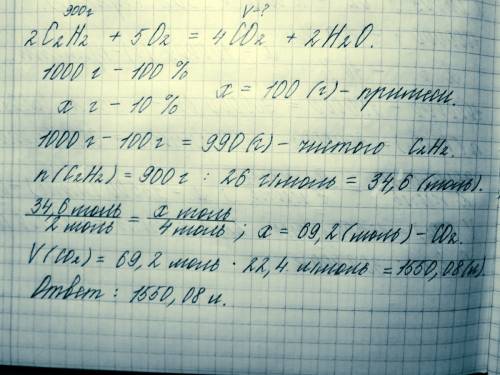 900г V-?
2C2H2 + 5O2 = 4CO2 + 2H2O.
1000 г - 100 %
x г - 10 % x = 100 (г) - примеси.
1000 г - 100 г = 990 (г) - чистого C2H2.
n(C2H2) = 900 г : 26 г/моль = 34,6 (моль).
34,6 моль / 2 моль = x моль / 4 моль ; x = 69,2 (моль) - CO2.
V(CO2) = 69,2 моль · 22,4 л/моль = 1550,08 (л).
Ответ : 1550,08 л.